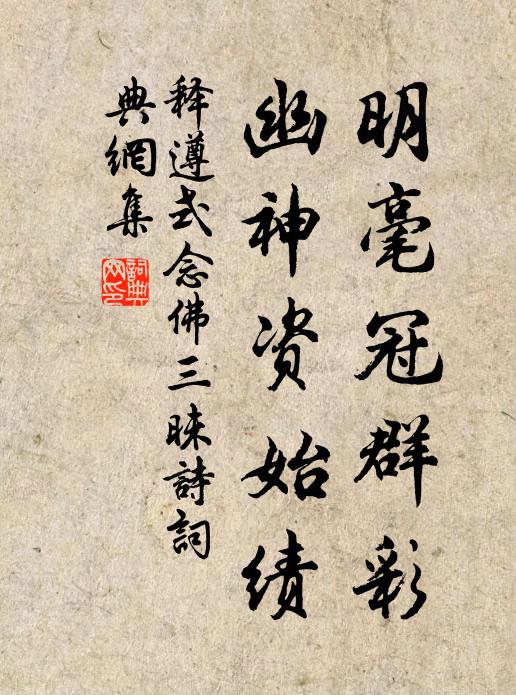 明毫冠群彩
幽神资始绩
释遵式念佛三昧詩詞
典網集
詞典
网印